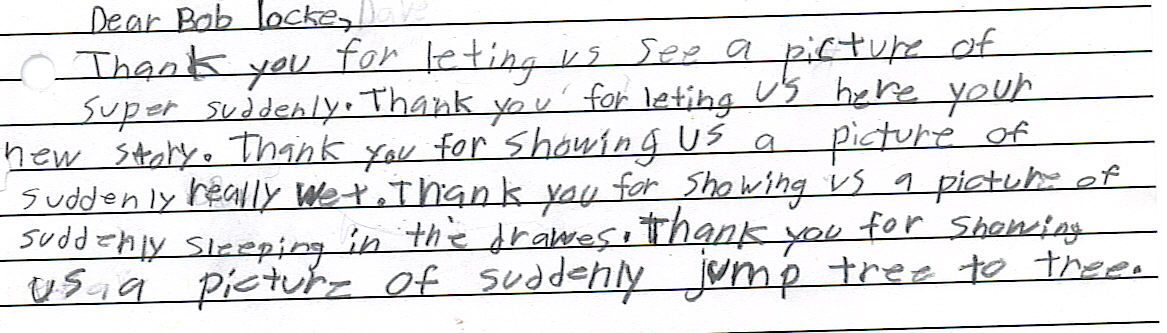 Dear Bob locke,
Thank you for leting us see a picture of
super suddenly. Thank you for leting us here your
new story. Thank you for showing us a picture of
suddenly really wet. Thank you for showing us a picture of
suddenly sleeping in the drawes. Thank you for showing
us a picture of suddenly jump tree to tree.